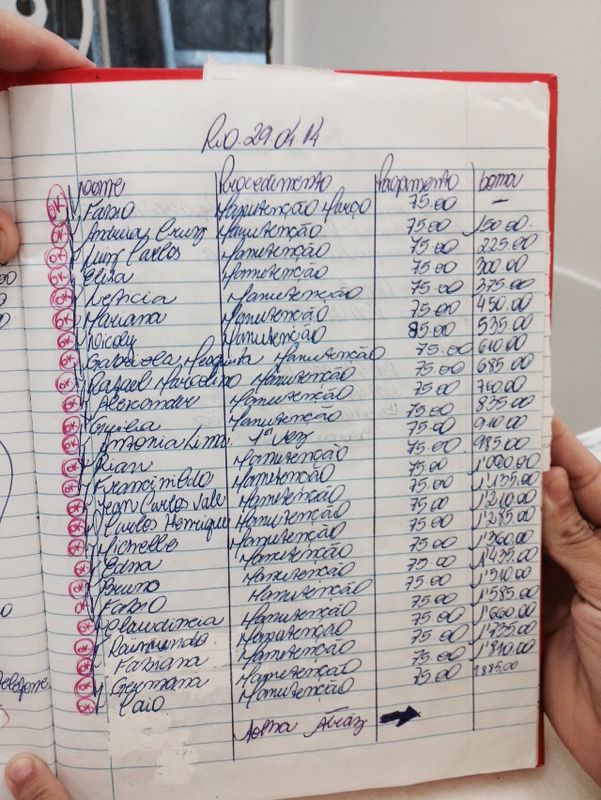 Rio. 29.04.14
Nome Procedimento Pagamento Soma
OK Fabio Manutenção Março 75.00 –
OK Andreia Cruz Manutenção 75.00 150.00
OK Luiz Carlos Manutenção 75.00 225.00
OK Elisa Manutenção 75.00 300.00
OK Leticia Manutenção 75.00 375.00
OK Mariana Manutenção 75.00 450.00
OK Nicoly Manutenção 85.00 535.00
OK Gabriela Mesquita Manutenção 75.00 610.00
OK Rafael Marcelino Manutenção 75.00 685.00
OK Alexsander Manutenção 75.00 760.00
OK Manutenção 75.00 835.00
OK Antonia Lima 1ª vez 75.00 910.00
OK Rian Manutenção 75.00 985.00
OK Francineldo Manutenção 75.00 1'060.00
OK Jean Carlos Vale Manutenção 75.00 1'135.00
OK Carlos Henrique Manutenção 75.00 1'210.00
OK Michelle Manutenção 75.00 1'285.00
OK Edna Manutenção 75.00 1'360.00
OK Bruno Manutenção 75.00 1'435.00
OK Fabio Manutenção 75.00 1'510.00
OK Claudincia Manutenção 75.00 1'585.00
OK Raimundo Manutenção 75.00 1'660.00
OK Fabiana Manutenção 75.00 1'735.00
OK Germana Manutenção 75.00 1'810.00
OK Caio Manutenção 75.00 1885.00
Soma Atráz